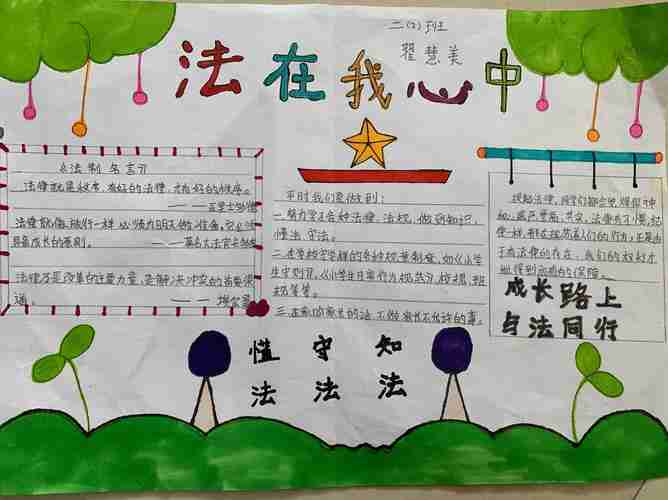 二(2)班
翟慧美
法在我心中
《法制名言》
法律就是秩序,有好的法律,才有好的秩序。
——亚里士多德
法律就像旅行一样,必须为明天做准备。它必须
具备成长的原则。——
法律乃是改革的主要力量,是解决冲突的首要渠
道。——埃尔曼
平时我们要做到:
一、努力学习各种法律、法规,做到知识,
懂法,守法。
二、在学校守学校的各种规章制度,如《小学
生守则》,《小学生日常行为规范》,校规、班
规等等。
三、在家听家长的话,不做家长不允许的事。
提起法律,同学们都会觉得很神
秘,威严
一样,都在规范着人们的行为,正是由
于有法律的存在,我们的权利才
能得到永恒的保障。
成长路上
与法同行
懂 守 知
法 法 法